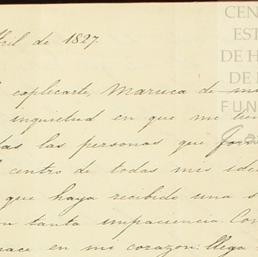 ril de 1827.
explicarte, Maruca de mi
inquietud en que me
das las personas que
centro de todas mis ide
que haya recibido una
tanta impaciencia. Con
nace en mi corazon: llega
CEN
EST
DE H
DE
FUN